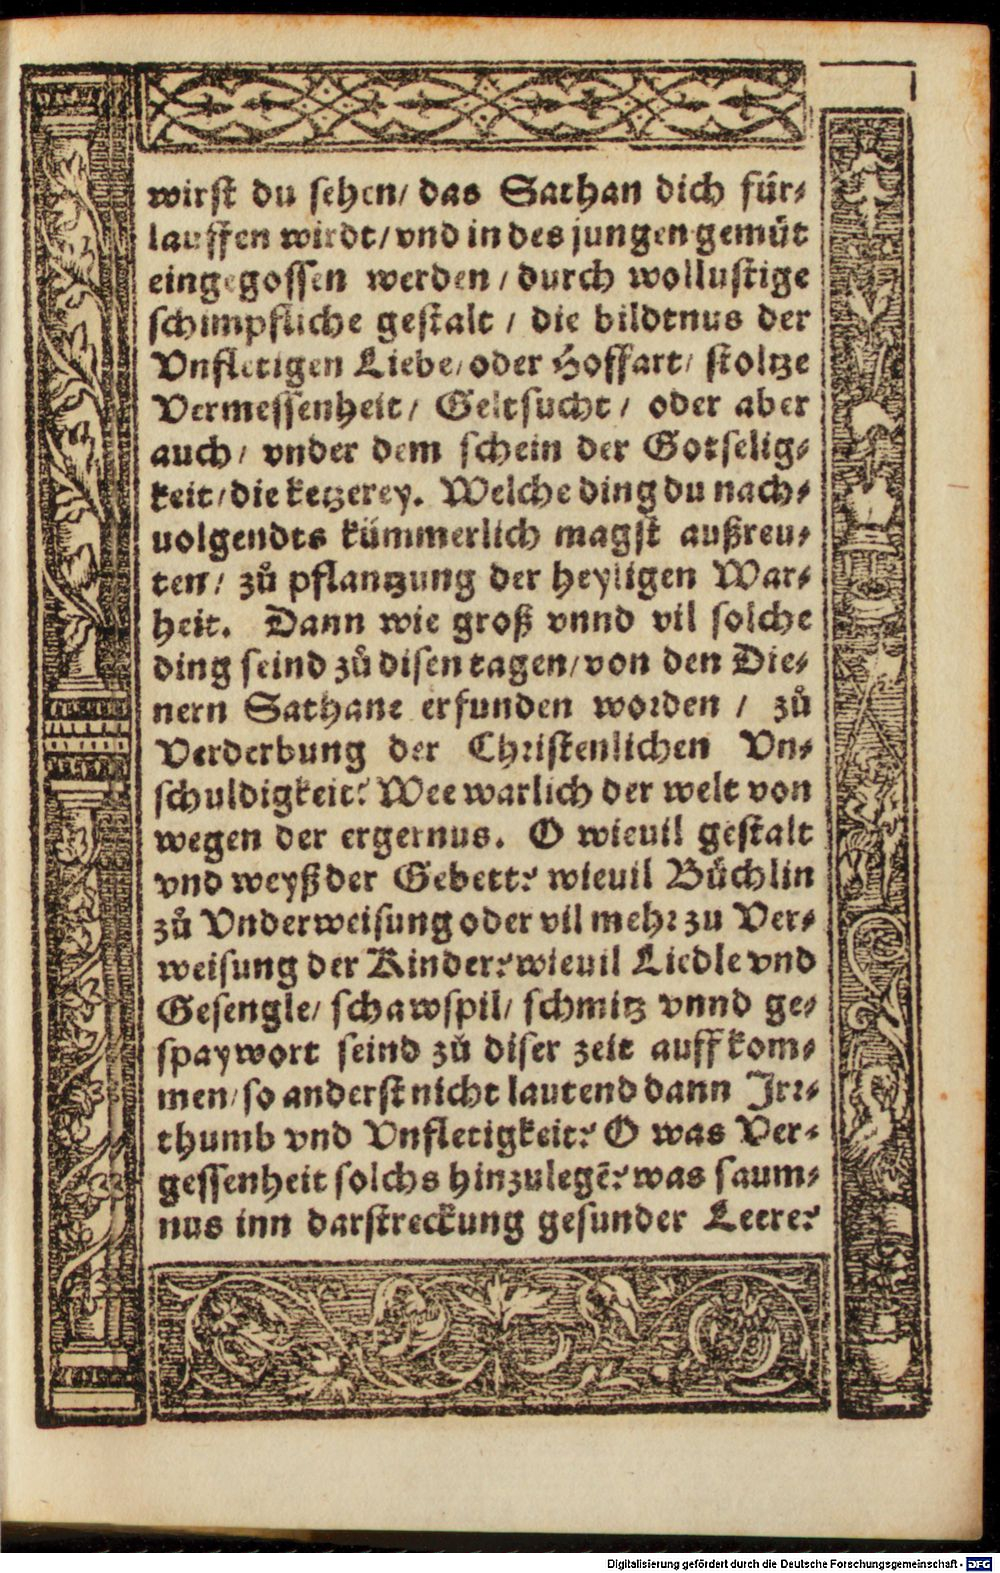 wirst du sehen/ das Sathan dich für-
lauffen wirdt/ vnd in des jungen gemüt
eingegossen werden / durch wollustige
schimpfliche gestalt / die bildtnus der
Vnfletigen Liebe/ oder Hoffart/ stoltze
Vermessenheit/ Geltsucht / oder aber
auch/ vnder dem schein der Gotselig-
keit/ die ketzerey. Welche ding du nach-
uolgendts kümmerlich magst außreu-
ten/ zů pflantzung der heyligen War-
heit. Dann wie groß vnnd vil solche
ding seind zů disen tagen/ von den Die-
nern Sathane erfunden worden / zů
Verderbung der Christenlichen Vn-
schuldigkeit? Wee warlich der welt von
wegen der ergernus. O wieuil gestalt
vnd weyß der Gebett? wieuil Bůchlin
zů Vnderweisung oder vil mehr zu Ver-
weisung der Kinder? wieuil Liedle vnd
Gesengle/ schawspil/ schmitz vnnd ge-
spaywort seind zů diser zeit auff kom-
men/ so anderst nicht lautend dann Irr-
thumb vnd Vnfletigkeit? O was Ver-
gessenheit solchs hinzulegẽ? was saum-
nus inn darstreckung gesunder Leere?
Digitalisierung gefördert durch die Deutsche Forschungsgemeinschaft - DFG